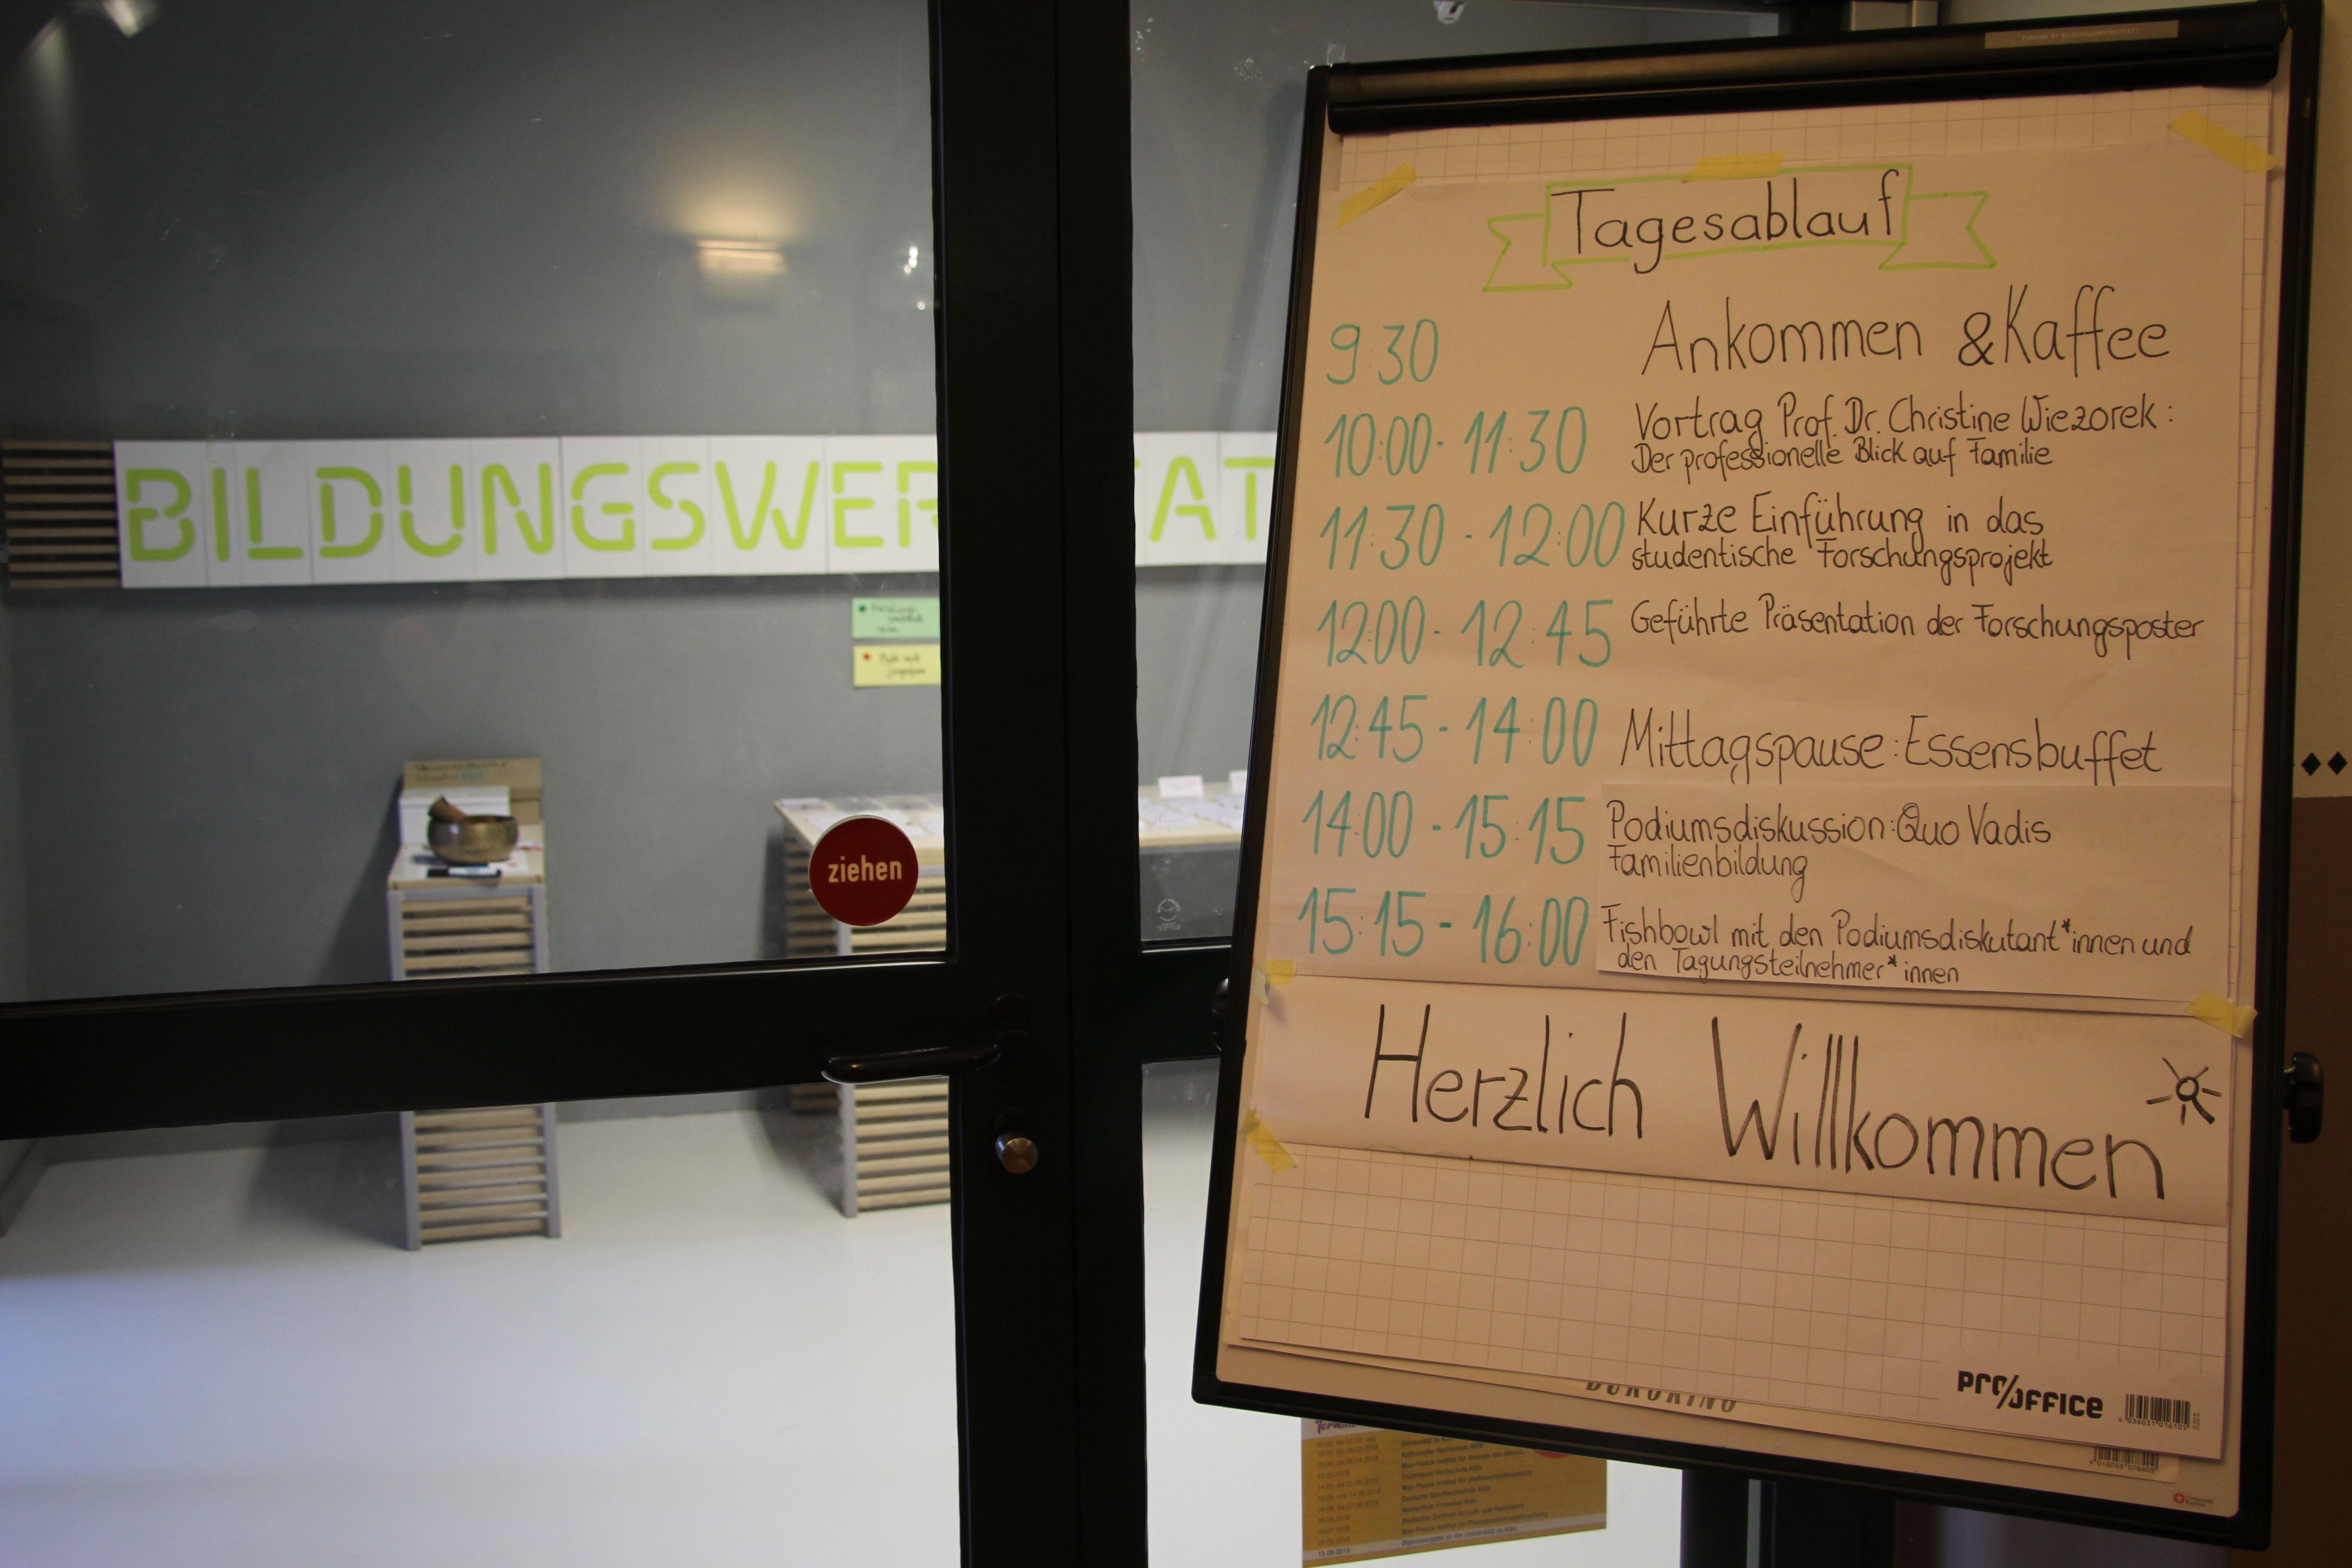 BILDUNGSWER
TAT
ziehen
Tagesablauf
9:30 Ankommen & Kaffee
10:00 - 11:30 Vortrag Prof. Dr. Christine Wiezorek:
Der professionelle Blick auf Familie
11:30 - 12:00 Kurze Einführung in das
studentische Forschungsprojekt
12:00 - 12:45 Geführte Präsentation der Forschungsposter
12:45 - 14:00 Mittagspause: Essensbuffet
14:00 - 15:15 Podiumsdiskussion: Quo Vadis
Familienbildung
15:15 - 16:00 Fishbowl mit den Podiumsdiskutant*innen und
den Tagungsteilnehmer*innen
Herzlich Willkommen
pro/office
4 036031 016105